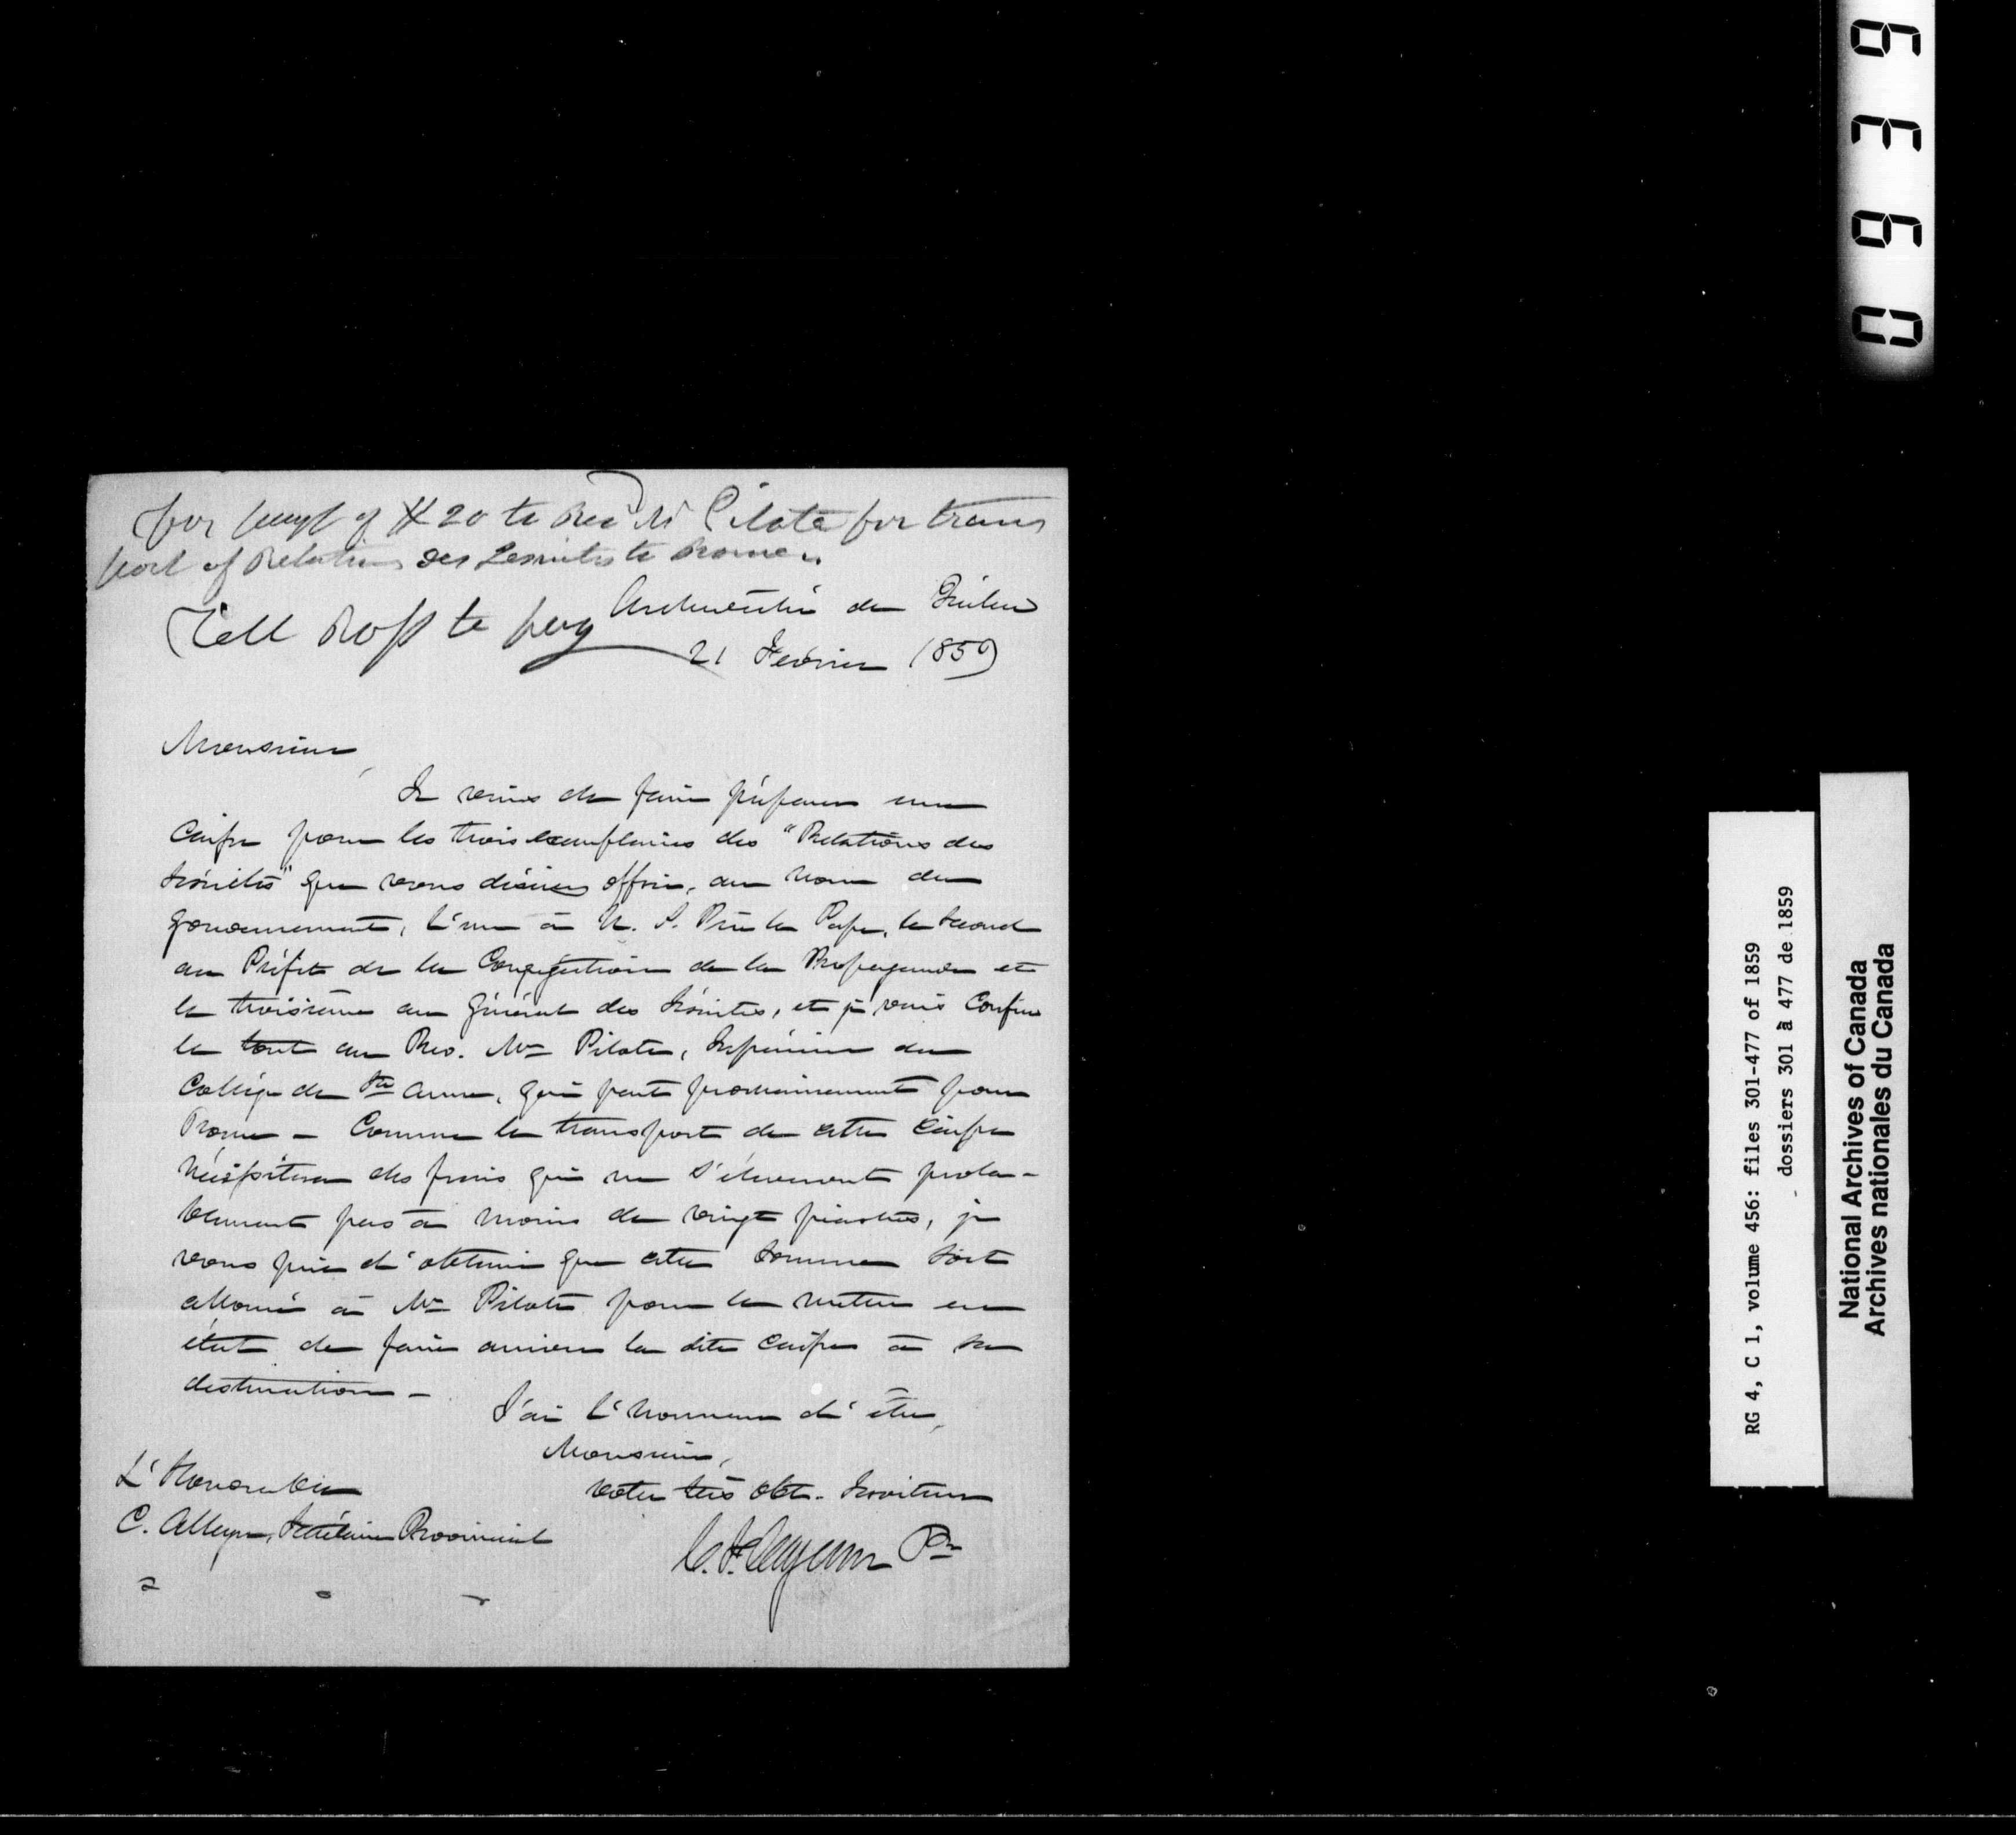 for paymt of $20 to Rev Mr Pilote for trans
port of Relations des Jesuites to Rome.
Tell Ross to pay
Archevêché de Québec
21 Février 1859
Monsieur,
Je viens de faire préparer une
Caisse pour les trois exemplaires des "Relations des
Jésuites" que vous désirez offrir, au nom du
gouvernement, l'un à N. S. Père le Pape, le second
au Préfet de la Congrégation de la Propagande et
le troisième au Général des Jésuites, et je vais Confier
le tout au Rev. Mr Pilote, Supérieur du
Collège de Ste Anne, qui part prochainement pour
Rome – Comme le transport de cette Caisse
nécessitera des frais qui ne s'élèveront proba-
blement pas à moins de vingt piastres, je
vous prie d'obtenir que cette somme soit
allouée à Mr Pilote pour le mettre en
état de faire arriver la dite Caisse à sa
destination –
J'ai l'honneur d'être,
Monsieur,
votre très obt. Serviteur
C. F. Cazeau Ptre
L'Honorable
C. Alleyn, Secrétaire Provincial
0939
RG 4, C 1, volume 456: files 301-477 of 1859
dossiers 301 à 477 de 1859
National Archives of Canada
Archives nationales du Canada